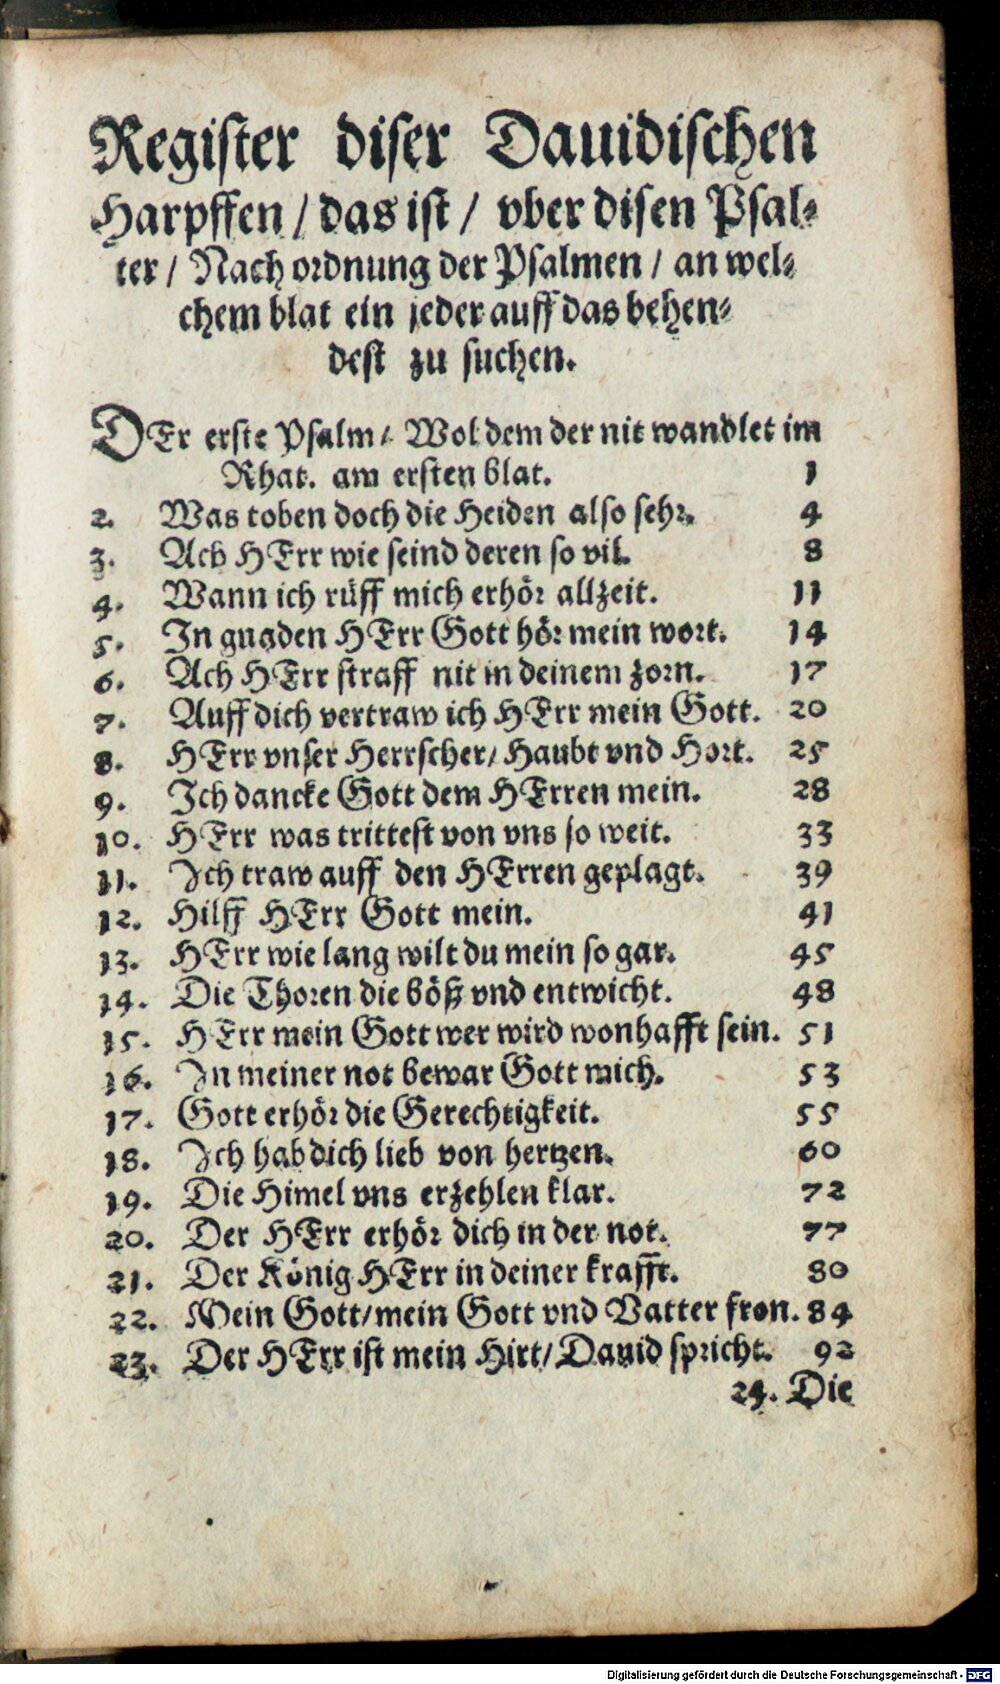 Register diser Dauidischen
Harpffen / das ist / vber disen Psal-
ter / Nach ordnung der Psalmen / an wel-
chem blat ein jeder auff das behen-
dest zu suchen.
DEr erste Psalm / Wol dem der nit wandlet im
Rhat. am ersten blat. 1
2. Was toben doch die Heiden also sehr. 4
3. Ach HErr wie seind deren so vil. 8
4. Wann ich rüff mich erhör allzeit. 11
5. In gnaden HErr Gott hör mein wort. 14
6. Ach HErr straff nit in deinem zorn. 17
7. Auff dich vertraw ich HErr mein Gott. 20
8. HErr vnser Herrscher / Haubt vnd Hort. 25
9. Ich dancke Gott dem HErren mein. 28
10. HErr was trittest von vns so weit. 33
11. Ich traw auff den HErren geplagt. 39
12. Hilff HErr Gott mein. 41
13. HErr wie lang wilt du mein so gar. 45
14. Die Thoren die böß vnd entwicht. 48
15. HErr mein Gott wer wird wonhafft sein. 51
16. In meiner not bewar Gott mich. 53
17. Gott erhör die Gerechtigkeit. 55
18. Ich hab dich lieb von hertzen. 60
19. Die Himel vns erzehlen klar. 72
20. Der HErr erhör dich in der not. 77
21. Der König HErr in deiner krafft. 80
22. Mein Gott / mein Gott vnd Vatter fron. 84
23. Der HErr ist mein Hirt / Dauid spricht. 92
24. Die
Digitalisierung gefördert durch die Deutsche Forschungsgemeinschaft - DFG